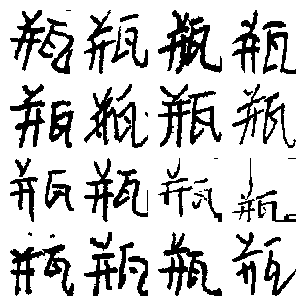 瓶瓶瓶瓶
瓶瓶瓶瓶
瓶瓶瓶瓶
瓶瓶瓶瓶